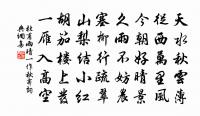 天水秋雲薄
從西萬里風
今朝好晴景
久雨不妨農
塞柳行疏翠
山梨結小紅
胡笳樓上發
一雁入高空
杜甫雨晴一作秋霽詞